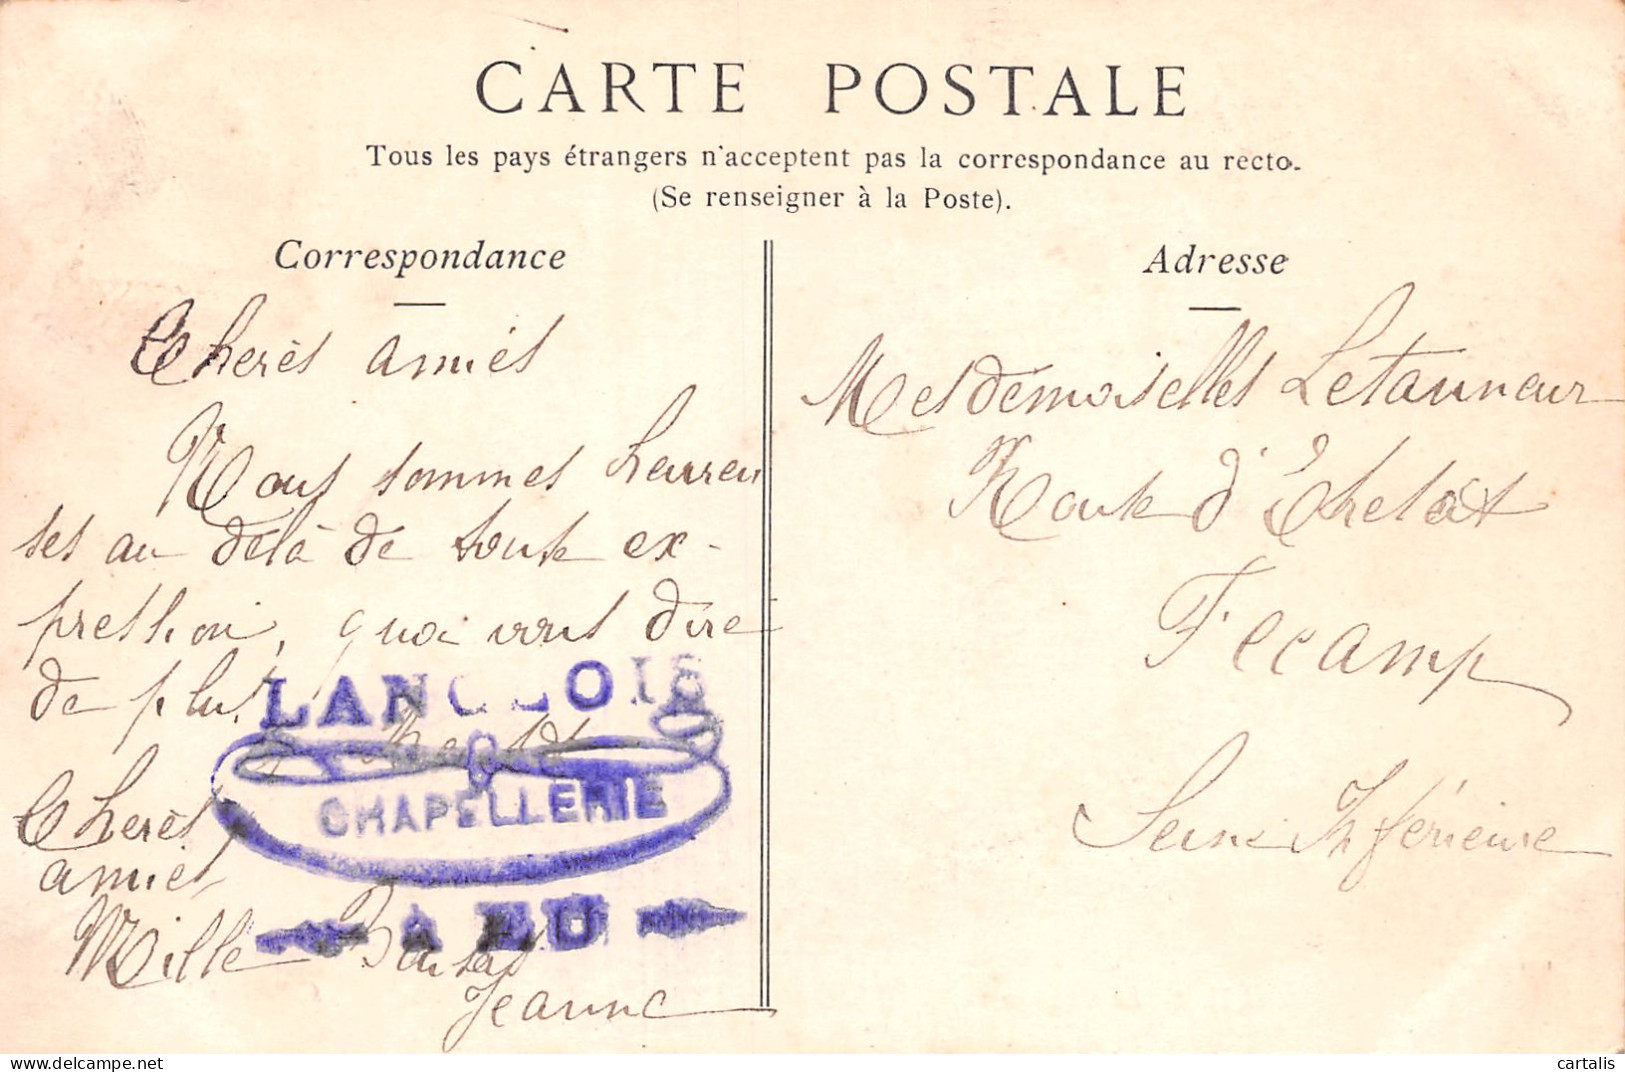 CARTE POSTALE
Tous les pays étrangers n'acceptent pas la correspondance au recto.
(Se renseigner à la Poste).
Correspondance
Cherès amiés
Nous sommes heureu
ses au délà de toute ex-
pression, quoi vous dire
de plus
Cherès
amies
Mille Baisers
Jeanne
LANGLOIS
CHAPELLERIE
A EU
Adresse
Mesdemoiselles Letanneur
Route d'Etretat
Fecamp
Seine Inférieure
cartalis